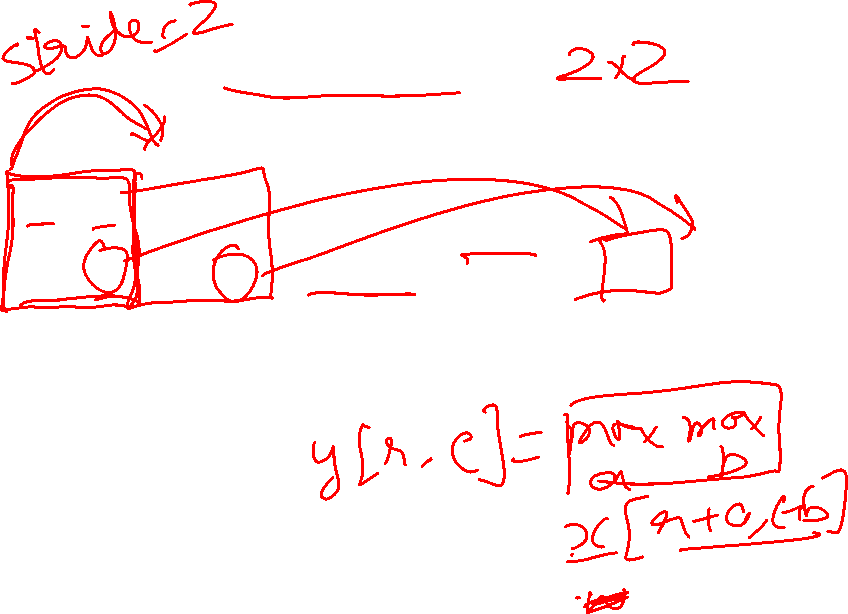 stride = 2
2x2
y[r, c] = max max
a b
x[r+a, c+b]